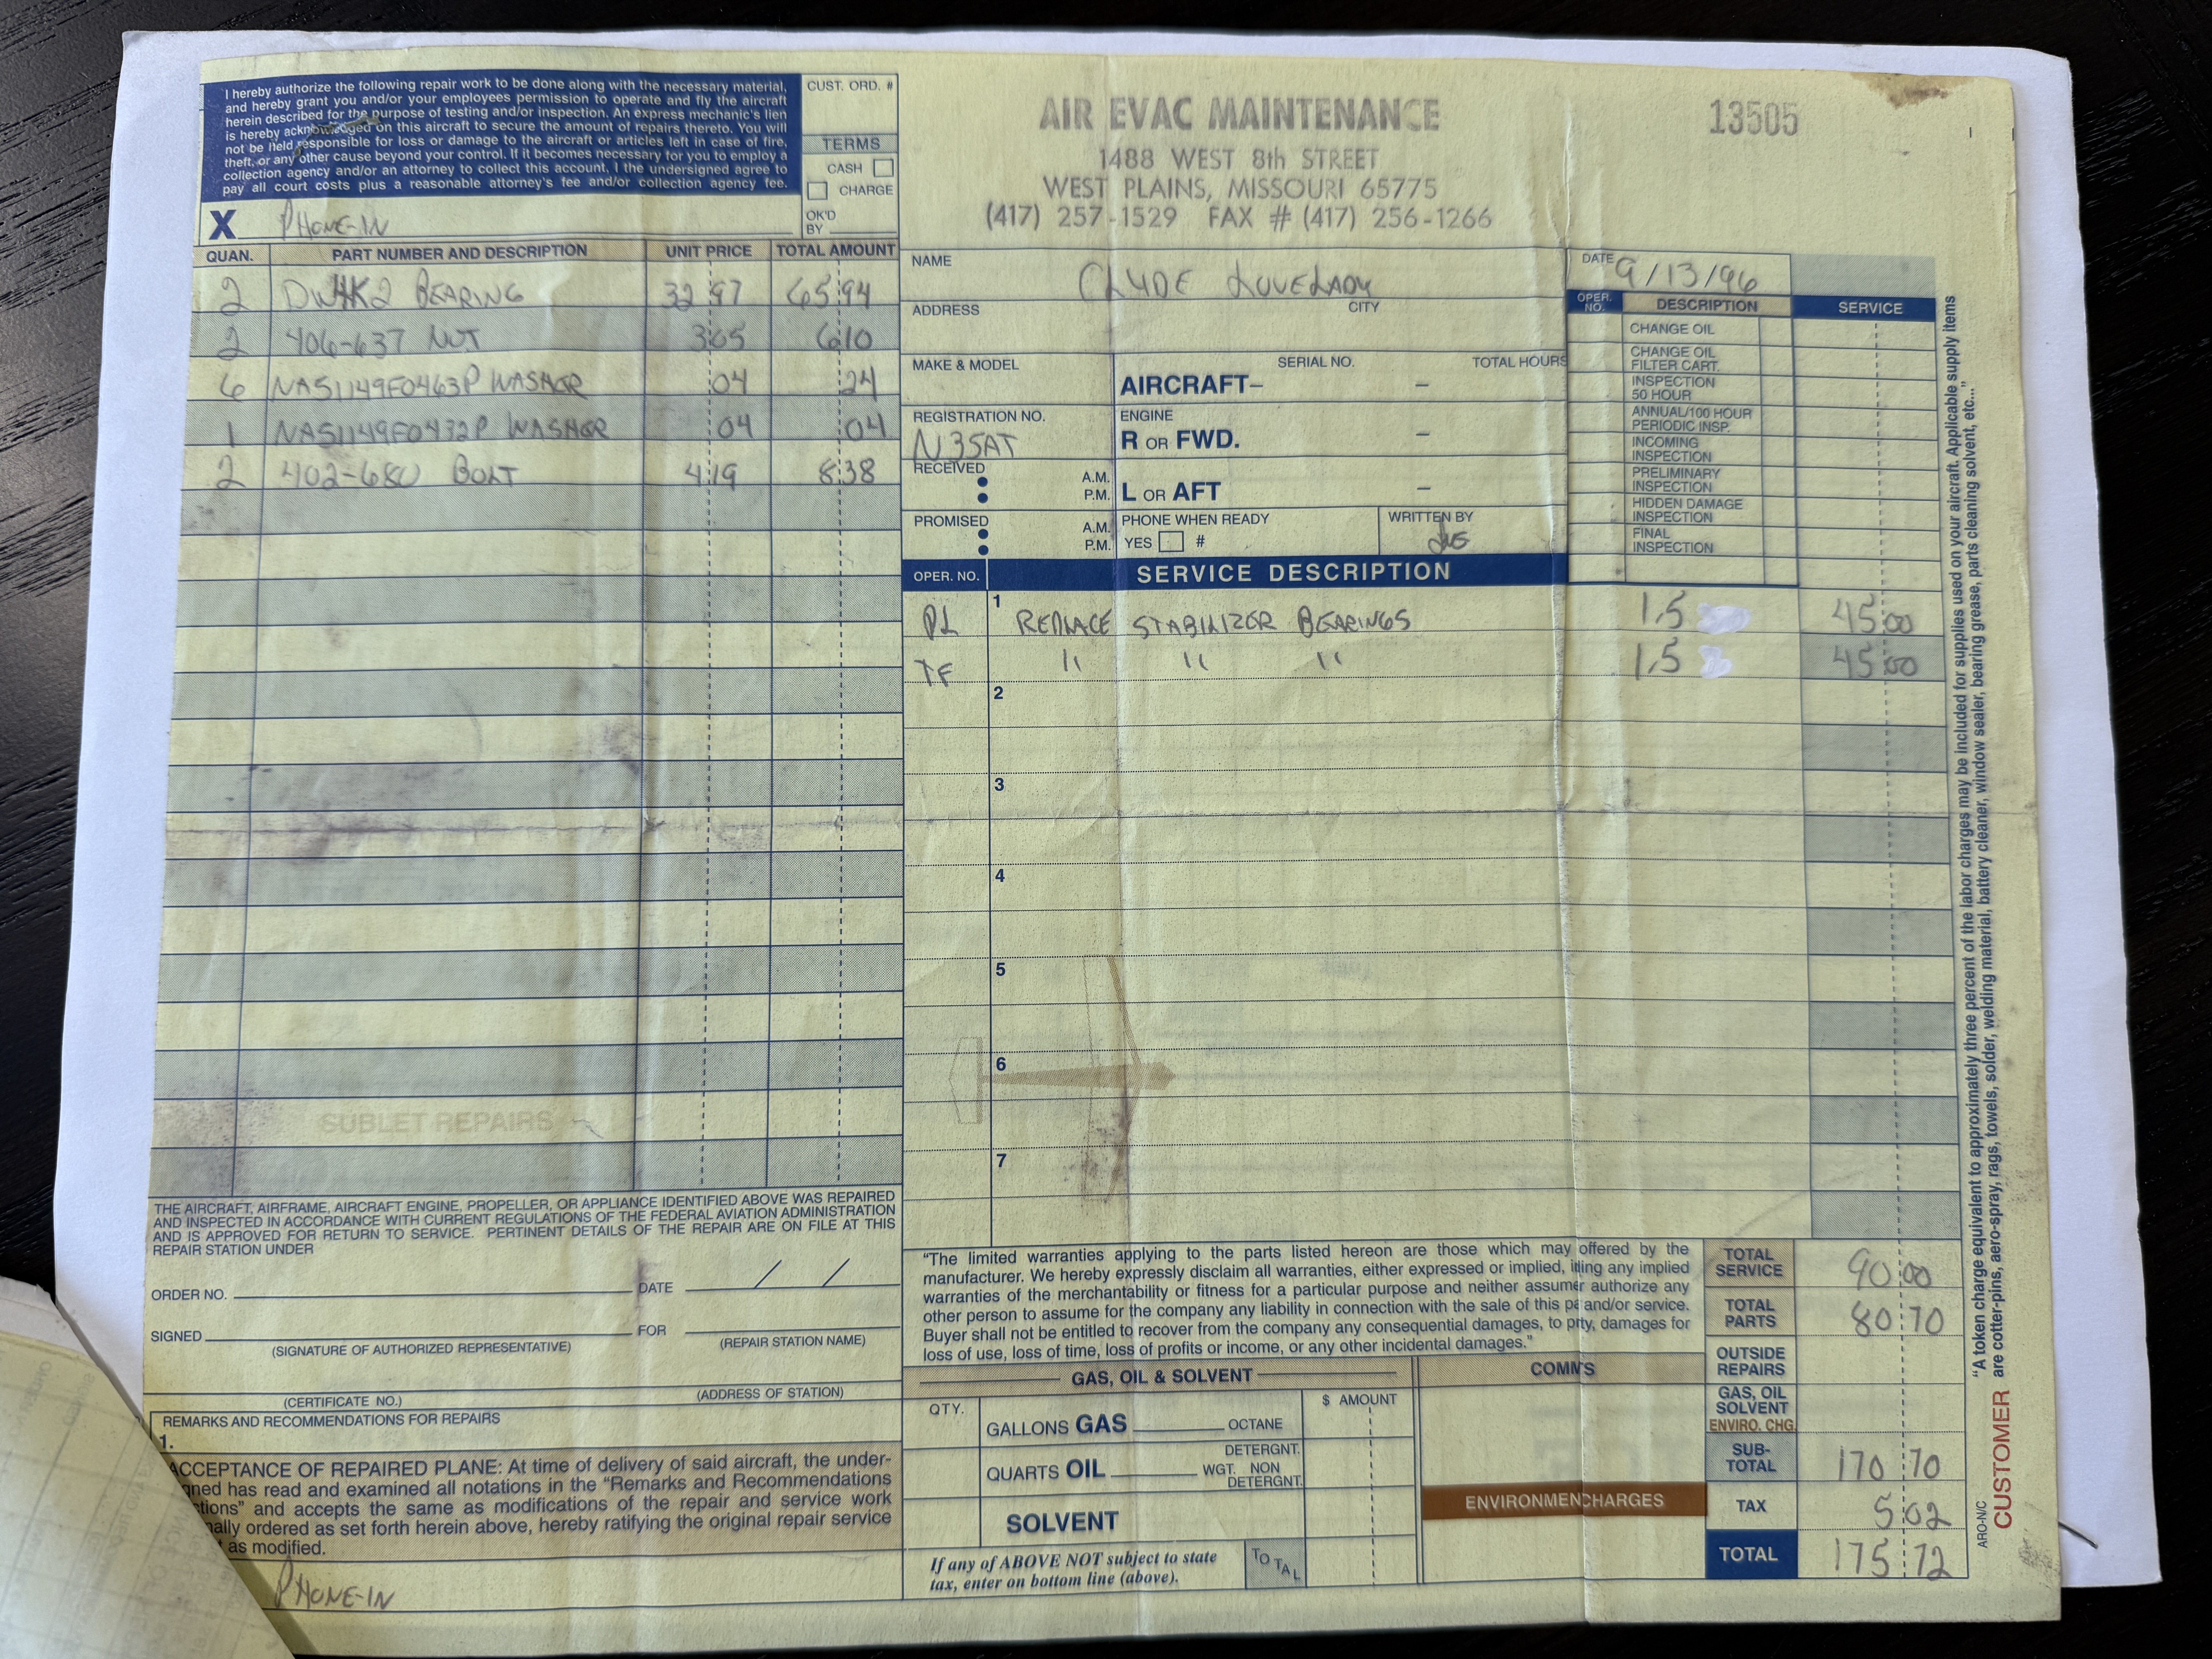 I hereby authorize the following repair work to be done along with the necessary material,
and hereby grant you and/or your employees permission to operate and fly the aircraft
herein described for the purpose of testing and/or inspection. An express mechanic's lien
is hereby acknowledged on this aircraft to secure the amount of repairs thereto. You will
not be held responsible for loss or damage to the aircraft or articles left in case of fire,
theft, or any other cause beyond your control. If it becomes necessary for you to employ a
collection agency and/or an attorney to collect this account, I the undersigned agree to
pay all court costs plus a reasonable attorney's fee and/or collection agency fee.
X PHONE-IN
CUST. ORD. #
TERMS
CASH
CHARGE
OK'D
BY
AIR EVAC MAINTENANCE
1488 WEST 8th STREET
WEST PLAINS, MISSOURI 65775
(417) 257-1529 FAX # (417) 256-1266
13505
QUAN. PART NUMBER AND DESCRIPTION UNIT PRICE TOTAL AMOUNT
2 DW4K2 BEARING 32 97 65 94
2 406-637 NUT 3 05 6 10
6 NAS1149F0463P WASHER 04 24
1 NAS1149F0432P WASHER 04 04
2 402-680 BOLT 4 19 8 38
SUBLET REPAIRS
NAME CLYDE LOVELADY
DATE 9/13/96
ADDRESS CITY
MAKE & MODEL SERIAL NO. TOTAL HOURS
AIRCRAFT– –
REGISTRATION NO. ENGINE
N35AT R OR FWD. –
RECEIVED A.M.
P.M. L OR AFT –
PROMISED A.M. PHONE WHEN READY WRITTEN BY
P.M. YES #
OPER. NO. DESCRIPTION SERVICE
CHANGE OIL
CHANGE OIL
FILTER CART.
INSPECTION
50 HOUR
ANNUAL/100 HOUR
PERIODIC INSP.
INCOMING
INSPECTION
PRELIMINARY
INSPECTION
HIDDEN DAMAGE
INSPECTION
FINAL
INSPECTION
OPER. NO. SERVICE DESCRIPTION
1
PL REPLACE STABILIZER BEARINGS 1.5 45 00
TF " " " 1.5 45 00
2
3
4
5
6
7
THE AIRCRAFT, AIRFRAME, AIRCRAFT ENGINE, PROPELLER, OR APPLIANCE IDENTIFIED ABOVE WAS REPAIRED
AND INSPECTED IN ACCORDANCE WITH CURRENT REGULATIONS OF THE FEDERAL AVIATION ADMINISTRATION
AND IS APPROVED FOR RETURN TO SERVICE. PERTINENT DETAILS OF THE REPAIR ARE ON FILE AT THIS
REPAIR STATION UNDER
ORDER NO. DATE / /
SIGNED FOR
(SIGNATURE OF AUTHORIZED REPRESENTATIVE) (REPAIR STATION NAME)
(CERTIFICATE NO.) (ADDRESS OF STATION)
REMARKS AND RECOMMENDATIONS FOR REPAIRS
1.
ACCEPTANCE OF REPAIRED PLANE: At time of delivery of said aircraft, the under-
ned has read and examined all notations in the "Remarks and Recommendations
ctions" and accepts the same as modifications of the repair and service work
nally ordered as set forth herein above, hereby ratifying the original repair service
as modified.
PHONE-IN
"The limited warranties applying to the parts listed hereon are those which may offered by the
manufacturer. We hereby expressly disclaim all warranties, either expressed or implied, iding any implied
warranties of the merchantability or fitness for a particular purpose and neither assumer authorize any
other person to assume for the company any liability in connection with the sale of this pa and/or service.
Buyer shall not be entitled to recover from the company any consequential damages, to prty, damages for
loss of use, loss of time, loss of profits or income, or any other incidental damages."
GAS, OIL & SOLVENT
QTY. $ AMOUNT
GALLONS GAS OCTANE
QUARTS OIL WGT. DETERGNT. NON DETERGNT.
SOLVENT
If any of ABOVE NOT subject to state
tax, enter on bottom line (above).
TOTAL
COMM'S
ENVIRONMENCHARGES
TOTAL SERVICE 90 00
TOTAL PARTS 80 70
OUTSIDE REPAIRS
GAS, OIL SOLVENT
ENVIRO. CHG.
SUB-TOTAL 170 70
TAX 5 02
TOTAL 175 72
"A token charge equivalent to approximately three percent of the labor charges may be included for supplies used on your aircraft. Applicable supply items
are cotter-p-pins, aero-spray, rags, towels, solder, welding material, battery cleaner, window sealer, bearing grease, parts cleaning solvent, etc..."
ARO-N/C
CUSTOMER